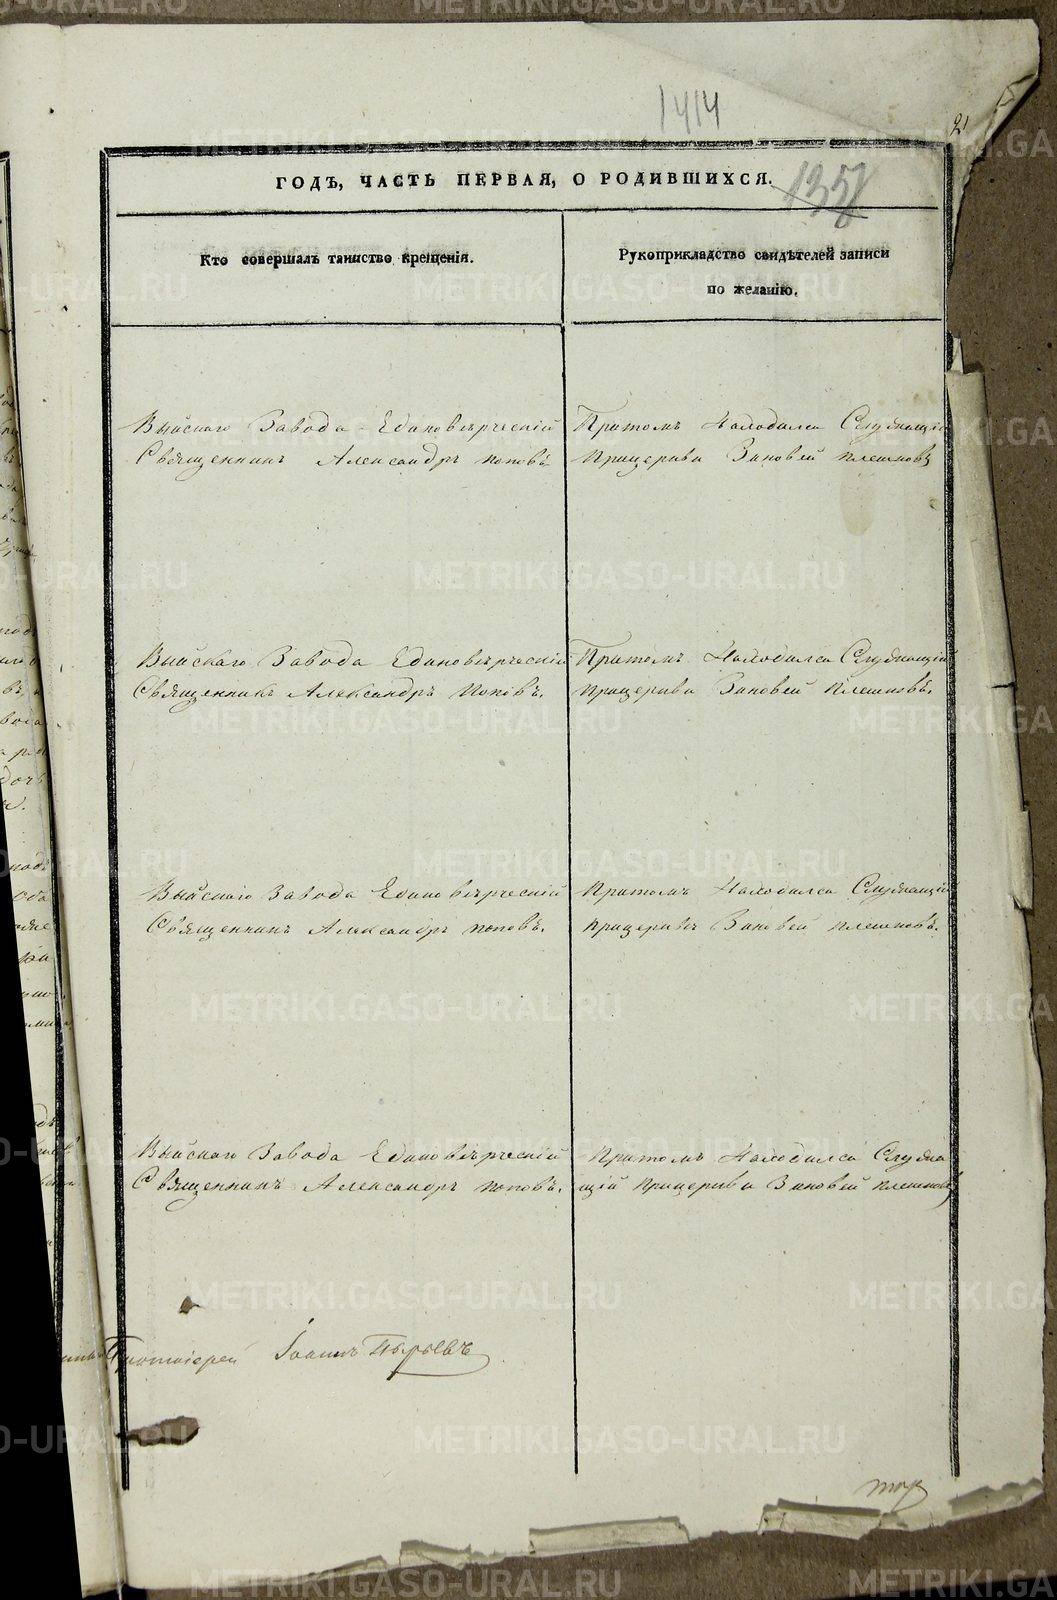 1414
21
ГОДЪ, ЧАСТЬ ПЕРВАЯ, О РОДИВШИХСЯ.
1358
Кто совершалъ таинство крещенія.
Рукоприкладство свидѣтелей записи
по желанію.
Выйскаго Завода Единовѣрческій
Священникъ Александръ Поповъ
Притомъ Находился Служащій
прицеркви Зиновей Плешковъ
Выйскаго Завода Единовѣрческій
Священникъ Александръ Поповъ.
Притомъ Находился Служащій
прицеркви Зиновей Плешковъ.
Выйскаго Завода Единовѣрческій
Священникъ Александръ Поповъ.
Притомъ Находился Служащій
прицеркви Зиновей Плешковъ.
Выйскаго Завода Единовѣрческій
Священникъ Александръ Поповъ.
Притомъ Находился Служа
щій прицеркви Зиновей Плешковъ
Протоіерей Іоаннъ Пырьевъ
METRIKI.GASO-URAL.RU